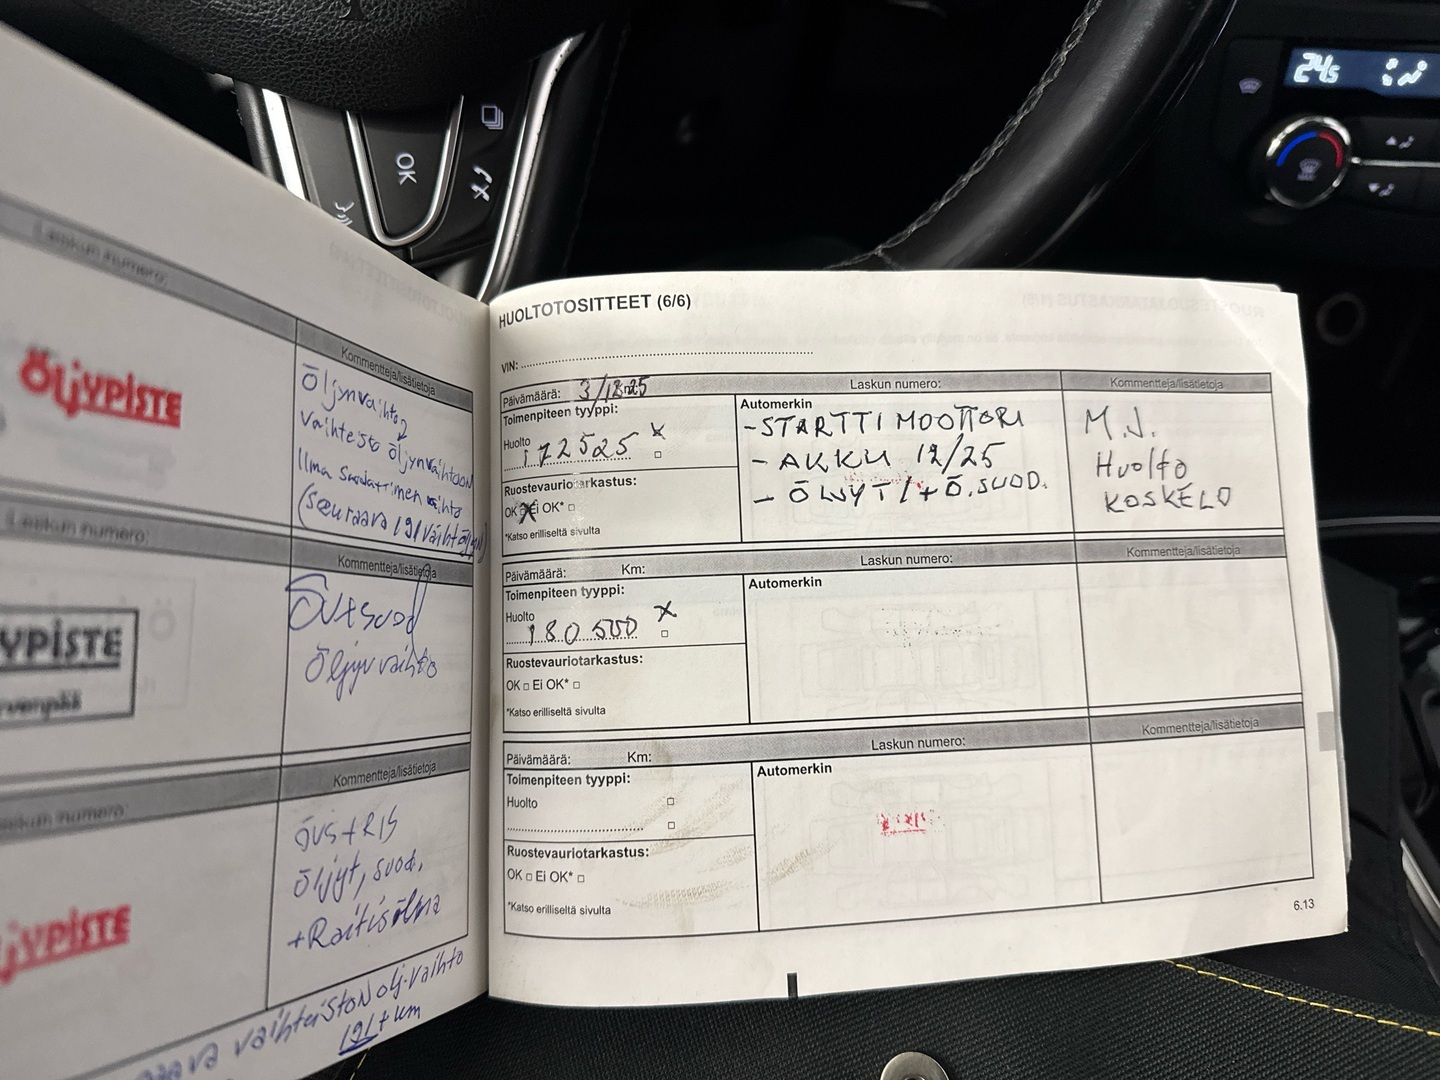 OK
24.5
Laskun numero:
ÖljYPISTE
Kommentteja/lisätietoja
Öljynvaihto
vaihteisto öljynvaihdon
Ilma suodattimen vaihto
(seuraava 191
Laskun numero:
Kommentteja/lisätietoja
YPISTE
rvenpää
öljyn vaihto
Laskun numero:
Kommentteja/lisätietoja
jYPISTE
ÖVS+RIS
Öljyt, suod.
+Raitisilma
vaihteistonölj.vaihto
191 tkm
HUOLTOTOSITTEET (6/6)
VIN:
Päivämäärä: 3/12-25
Laskun numero:
Kommentteja/lisätietoja
Toimenpiteen tyyppi:
Huolto
172525 x
Ruostevauriotarkastus:
OK Ei OK*
*Katso erilliseltä sivulta
Automerkin
-STARTTI MOOTTORI
- AKKU 12/25
- ÖLJYT / + Ö.SUOD.
M.J.
Huolto
KOSKELO
Päivämäärä: Km:
Laskun numero:
Kommentteja/lisätietoja
Toimenpiteen tyyppi:
Huolto
180500 x
Ruostevauriotarkastus:
OK Ei OK*
*Katso erilliseltä sivulta
Automerkin
Päivämäärä: Km:
Laskun numero:
Kommentteja/lisätietoja
Toimenpiteen tyyppi:
Huolto
Ruostevauriotarkastus:
OK Ei OK*
*Katso erilliseltä sivulta
Automerkin
6.13